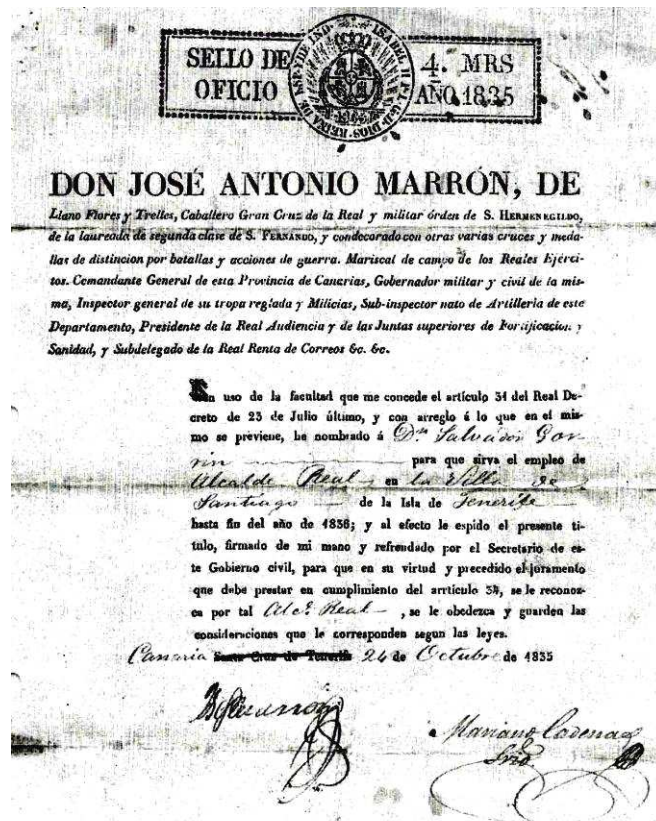 SELLO DE
OFICIO
ISABEL II P. L. G. D. DIOS. REINA DE ESP. Y DE IND.
4.º MRS
AÑO 1835
DON JOSÉ ANTONIO MARRÓN, DE
Llano Flores y Trelles, Caballero Gran Cruz de la Real y militar órden de S. HERMENEGILDO,
de la laureada de segunda clase de S. FERNANDO, y condecorado con otras varias cruces y meda-
llas de distincion por batallas y acciones de guerra. Mariscal de campo de los Reales Ejérci-
tos. Comandante General de esta Provincia de Canarias, Gobernador militar y civil de la mis-
ma, Inspector general de su tropa reglada y Milicias, Sub-inspector nato de Artillería de este
Departamento, Presidente de la Real Audiencia y de las Juntas superiores de Fortificacion y
Sanidad, y Subdelegado de la Real Renta de Correos &c. &c.
En uso de la facultad que me concede el artículo 31 del Real De-
creto de 23 de Julio último, y con arreglo á lo que en el mis-
mo se previene, he nombrado á Dn. Salvador Gor-
rin para que sirva el empleo de
Alcalde Real en la Villa de
Santiago de la Isla de Tenerife
hasta fin del año de 1836; y al efecto le espido el presente tí-
tulo, firmado de mi mano y refrendado por el Secretario de es-
te Gobierno civil, para que en su virtud y precedido el juramento
que debe prestar en cumplimiento del arrtículo 34, se le reconoz-
ca por tal Alce. Real, se le obedezca y guarden las
consideraciones que le corresponden segun las leyes.
Canaria Santa Cruz de Tenerife 24 de Octubre de 1835
Mariano Cadenas
Srio